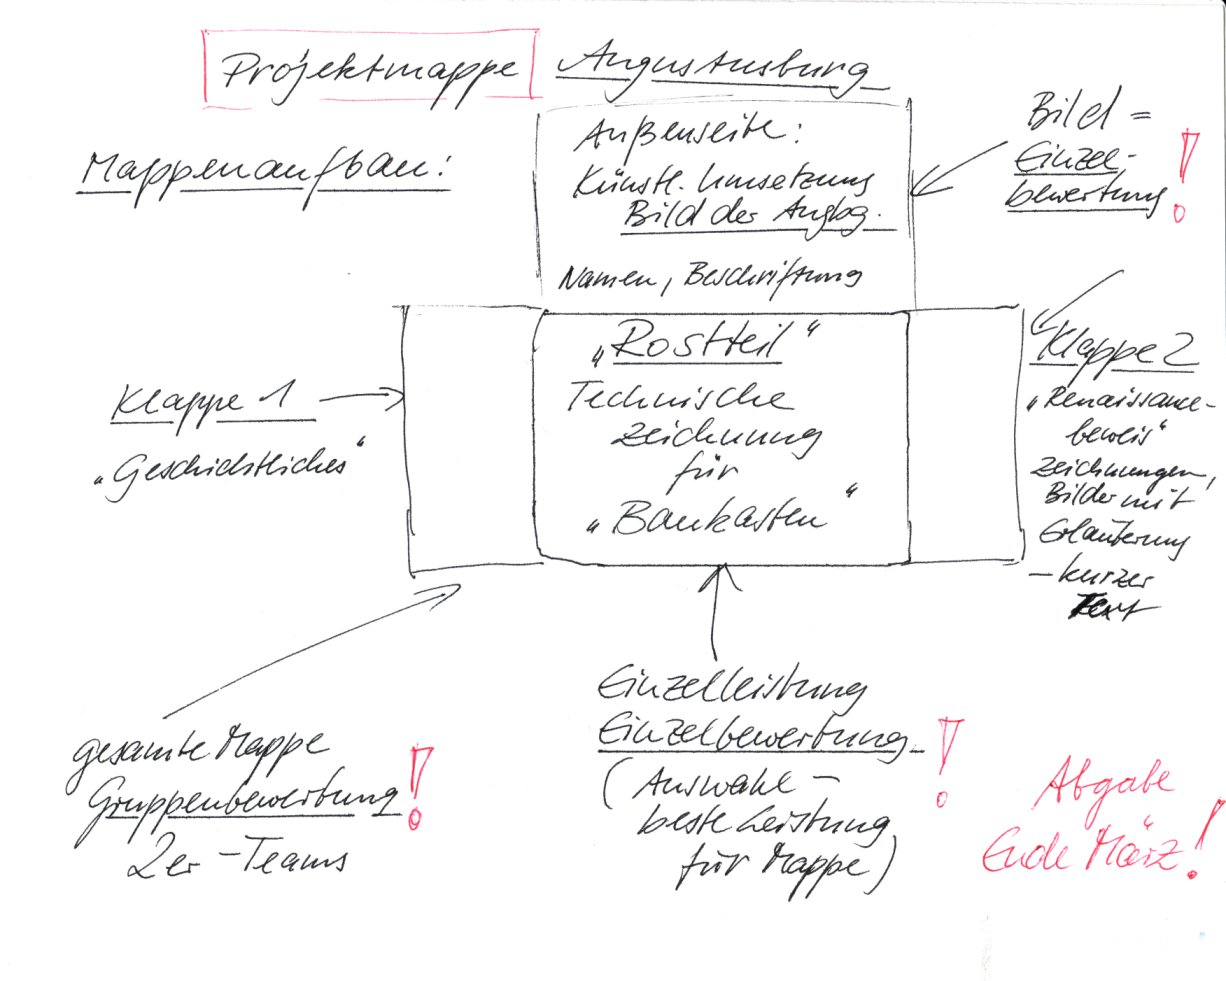 Projektmappe Augustusburg
Mappenaufbau:
Außenseite:
Künstl. Umsetzung
Bild der Augbg.
Namen, Beschriftung
Bild =
Einzel-
bewertung !
Klappe 1
"Geschichtliches"
„Rostteil“
Technische
Zeichnung
für
„Baukasten“
Klappe 2
„Renaissance-
beweis“
Zeichnungen,
Bilder mit
Erläuterung
– kurzer
Text
gesamte Mappe
Gruppenbewertung !
2er-Teams
Einzelleistung
Einzelbewertung !
(Auswahl –
beste Leistung
für Mappe)
Abgabe
Ende März!